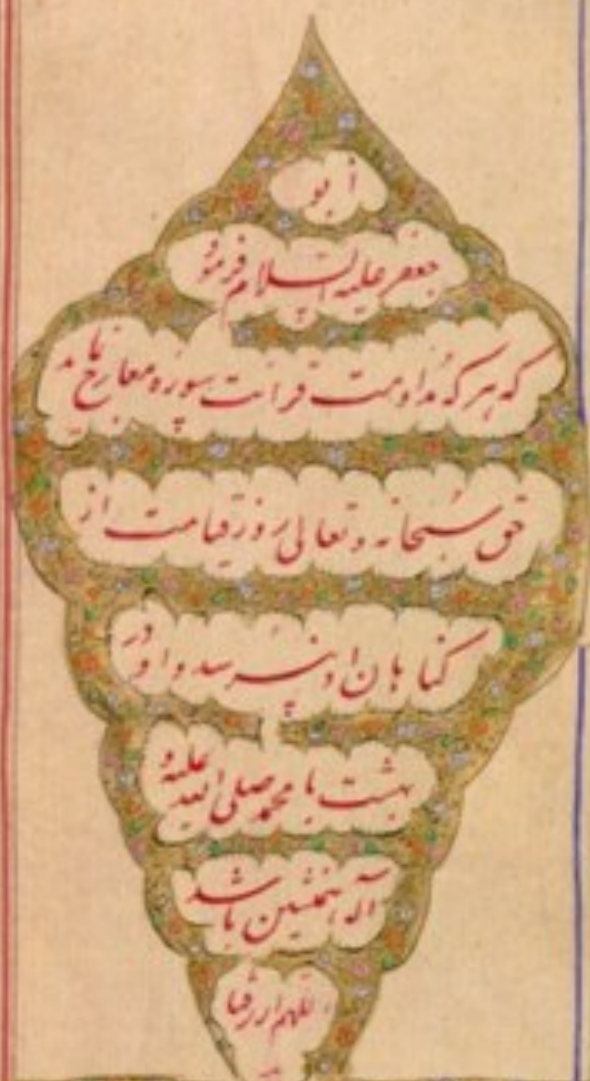 ابو
جعفر علیه السلام فرمود
که هر که مداومت قرائت سوره معارج نماید
حق سبحانه و تعالی روز قیامت از
کناهان او نپرسد و او در
بهشت با محمد صلی الله علیه و
آله همنشین باشد
اللهم ارزقنا